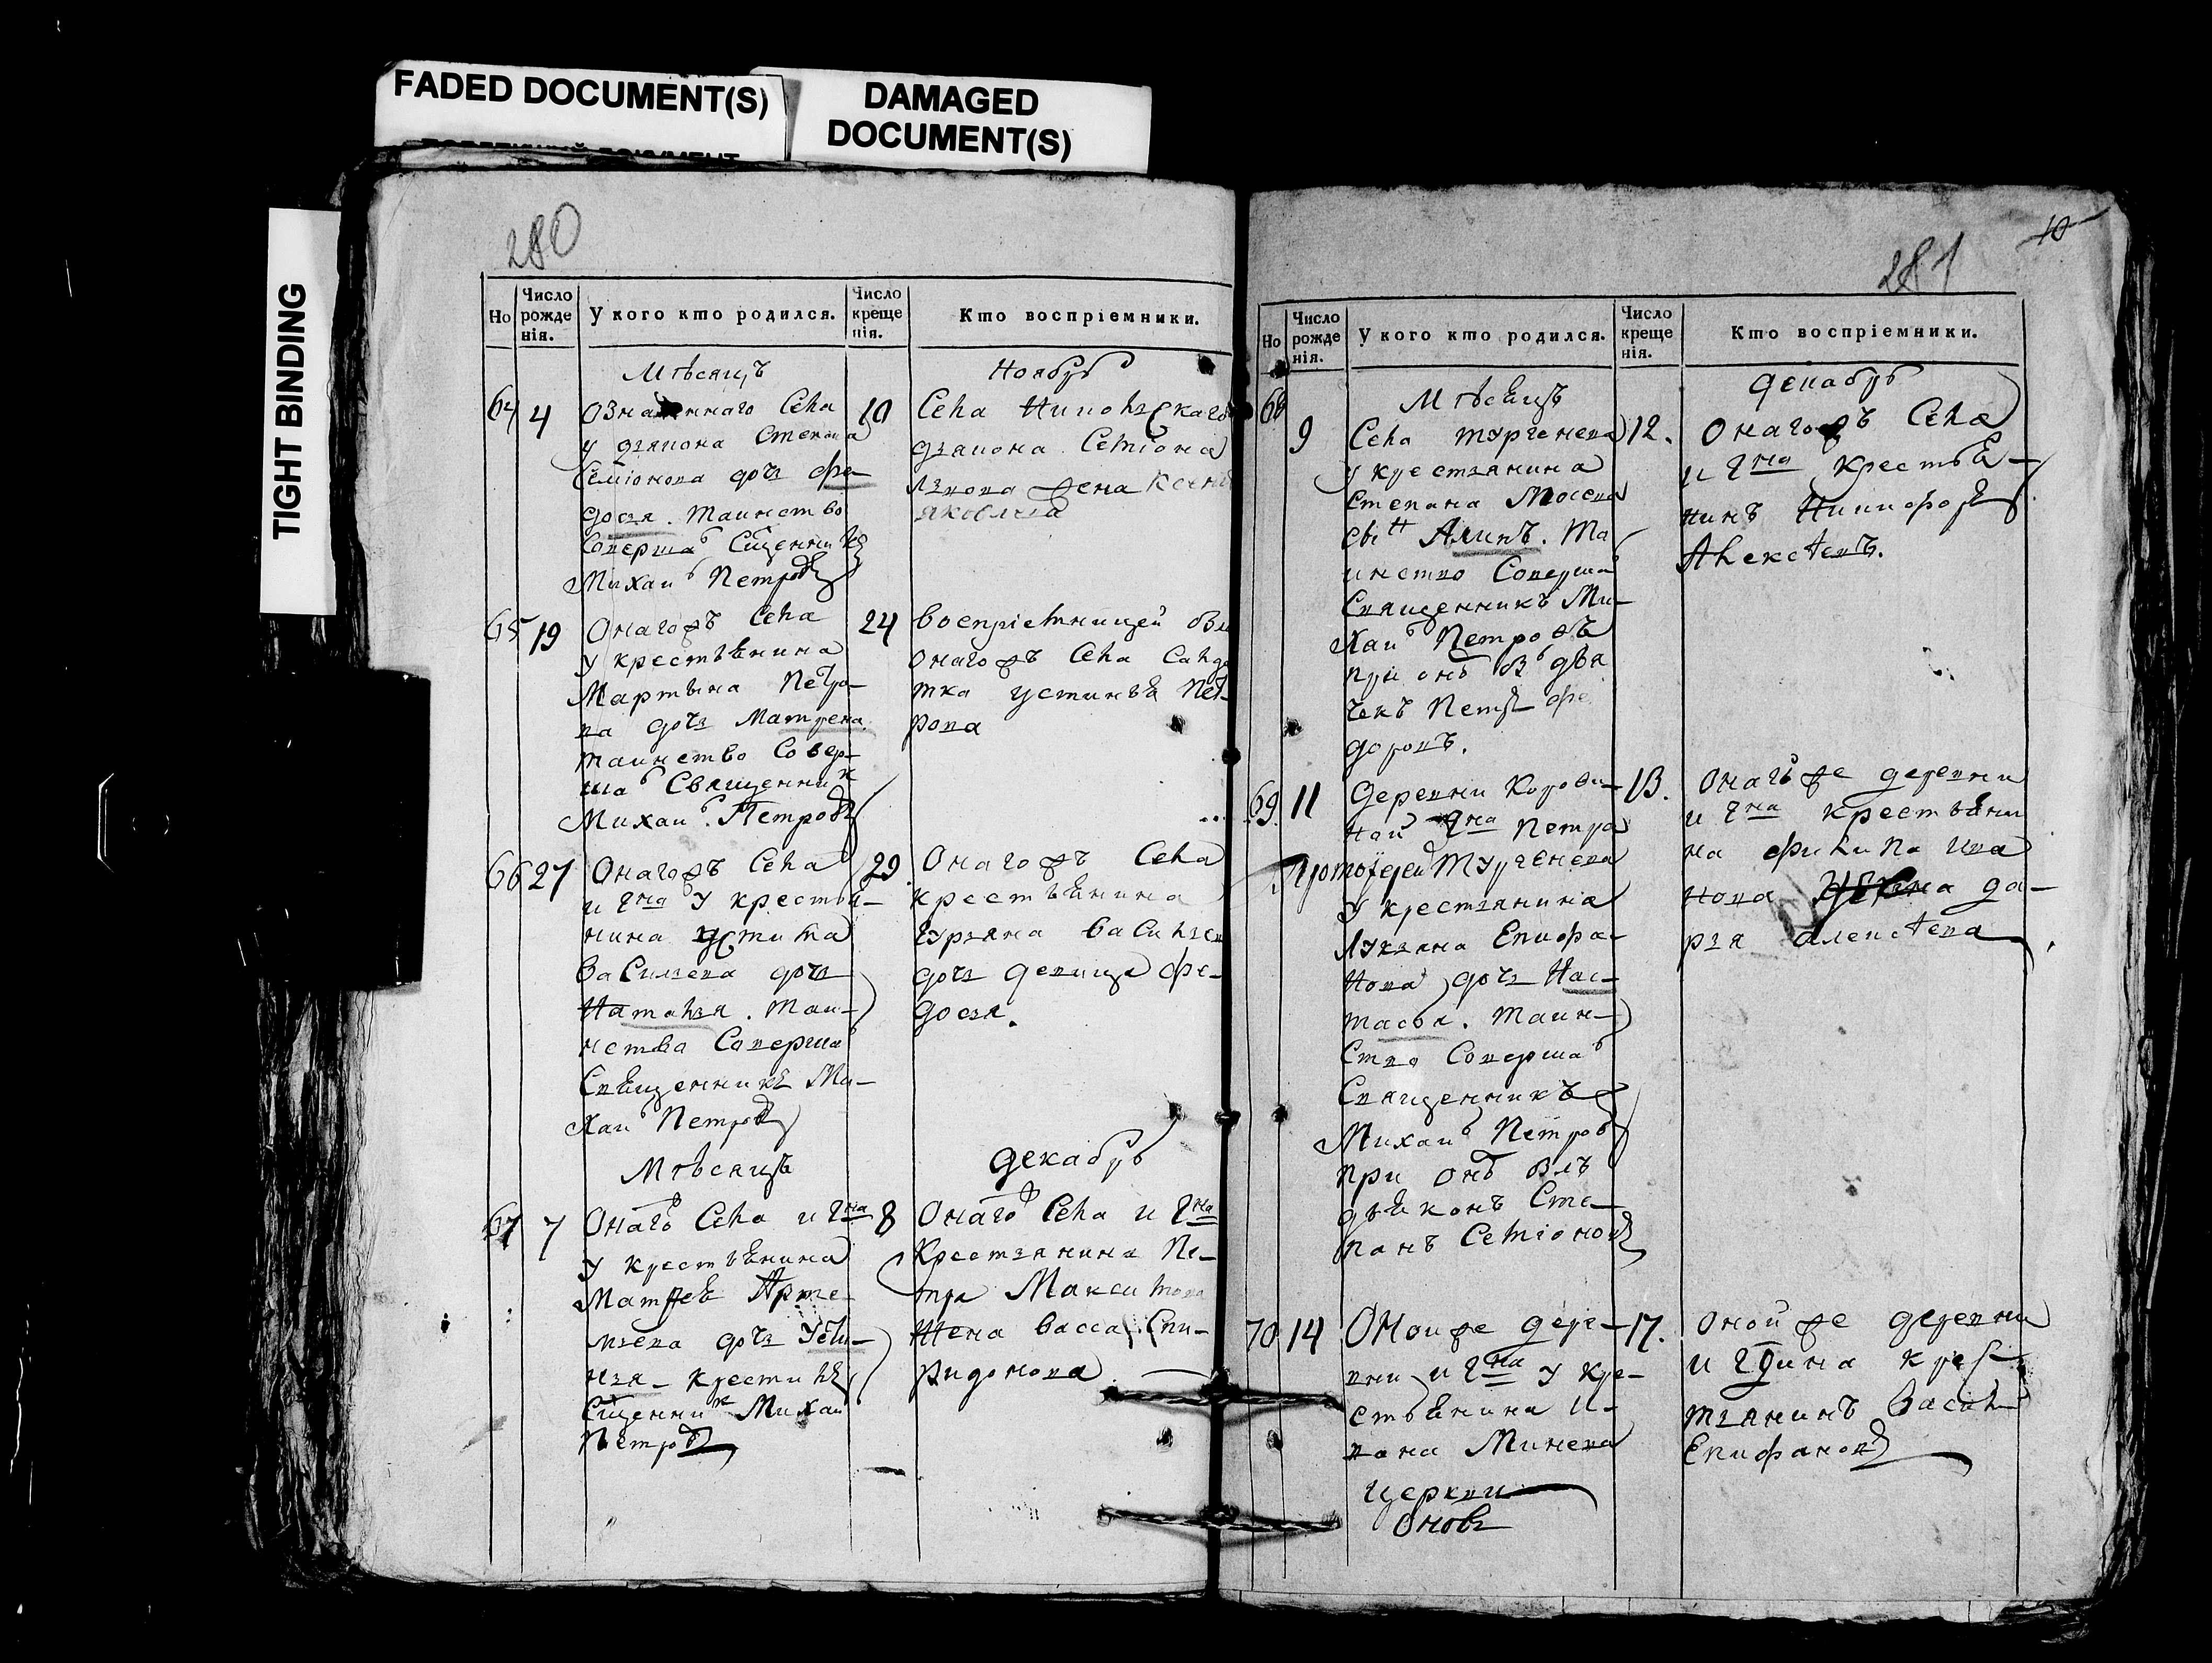 FADED DOCUMENT(S)
DAMAGED
DOCUMENT(S)
TIGHT BINDING
280
Но
Число рожде нія.
У кого кто родился.
Число креще нія.
Кто воспріемники.
Мѣсяцъ
Ноябрь
64
4
Означеннаго Села
у дзякона Степана
Семіонова дочь Фе-
досья. таинство
Соверша Сщенникъ
Михаи Петровъ
10
Села Никольскаго
дзякона Семіона
Львова жена Ксенія
Яковлева
65
19
Онагожъ Села
у крестьянина
Мартына Петро-
ва дочь Матрена.
таинство Совер-
ша Священник
Михаи. Петровъ
24
Воспріемницей
онагожъ Села Салда
тка устинья Пет-
рова
66
27
Онагожъ Села
и Гна у крестья-
нина
Василева дочь
Наталья. Таи-
нства Соверша
Священникъ Ми-
хаи Петровъ
29.
Онагожъ Села
крестьянина
Василье
дочь девица Фе-
досья.
Мѣсяцъ
декабрь
67
7
Онаго Села и Гна
у крестьянина
Матфея Арте-
мьева дочь Усти-
нья - крестилъ
Сщенник Михаи
Петровъ
8
Онаго Села и Гна
Крестьянина Пе-
тра Максимова
жена Васса Спи-
ридонова
10
281
Но
Число рожде нія.
У кого кто родился.
Число креще нія.
Кто воспріемники.
Мѣсяцъ
декабрь
68
9
Села тургенева
у крестьянина
Степана Мосева
сынъ . Та
инство Соверша
Священникъ Ми-
хаи Петровъ
при онъ дья
чекъ Петръ Фе
доровъ.
12.
Онагожъ Села
и Гна крестья-
нинъ Никифоръ
Алексеевъ.
69
11
Деревни Корови-
ной Гна Петра
Протоіерей Тургенева
у крестьянина
Лукьяна Епифа-
нова дочь Нас-
тасья. таин-
ство Соверша
Священникъ
Михаи Петров
при онъ
дьяконъ Сте-
панъ Семіоновъ
13.
Онагъже деревни
и Гна крестьяни
на Филипа Ива
нова да-
рья Алексеева
70
14
Онойже дере-
вни и Гна у кре-
стьянина И-
вана Минева
17.
оной же деревни
и Гдина крес-
тьянинъ Васил
Епифановъ
церкви